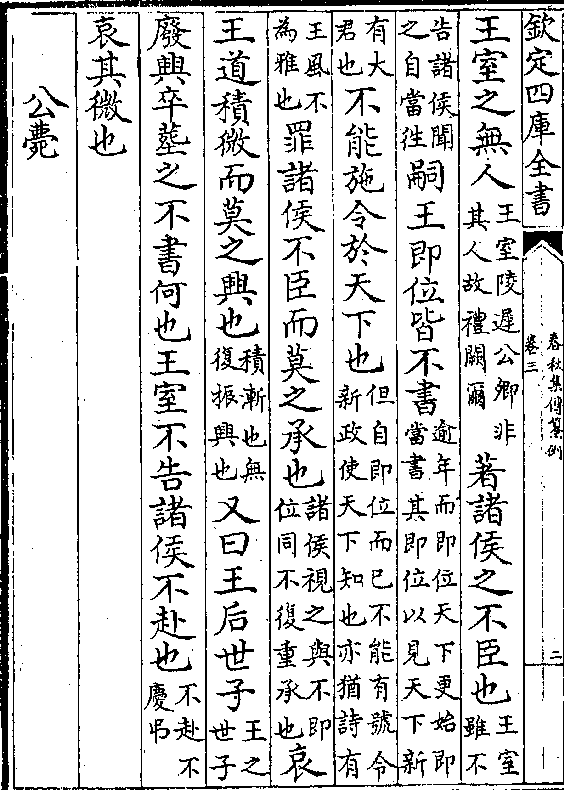 欽定四庫全書
春秋集傳纂例
卷三
二
王室之無人王室陵遲公卿非其人故禮闕爾著諸侯之不臣也王室雖不
告諸侯聞之自當往嗣王即位皆不書逾年而即位天下更始即當書其即位以見天下新
有大君也不能施令於天下也但自即位而已不能有號令新政使天下知也亦猶詩有
王風不為雅也罪諸侯不臣而莫之承也諸侯視之與不即位同不復重承也哀
王道積微而莫之興也積漸也無復振興也又曰王后世子王之世子
廢興卒塟之不書何也王室不告諸侯不赴也不赴不慶弔
哀其微也
公薨